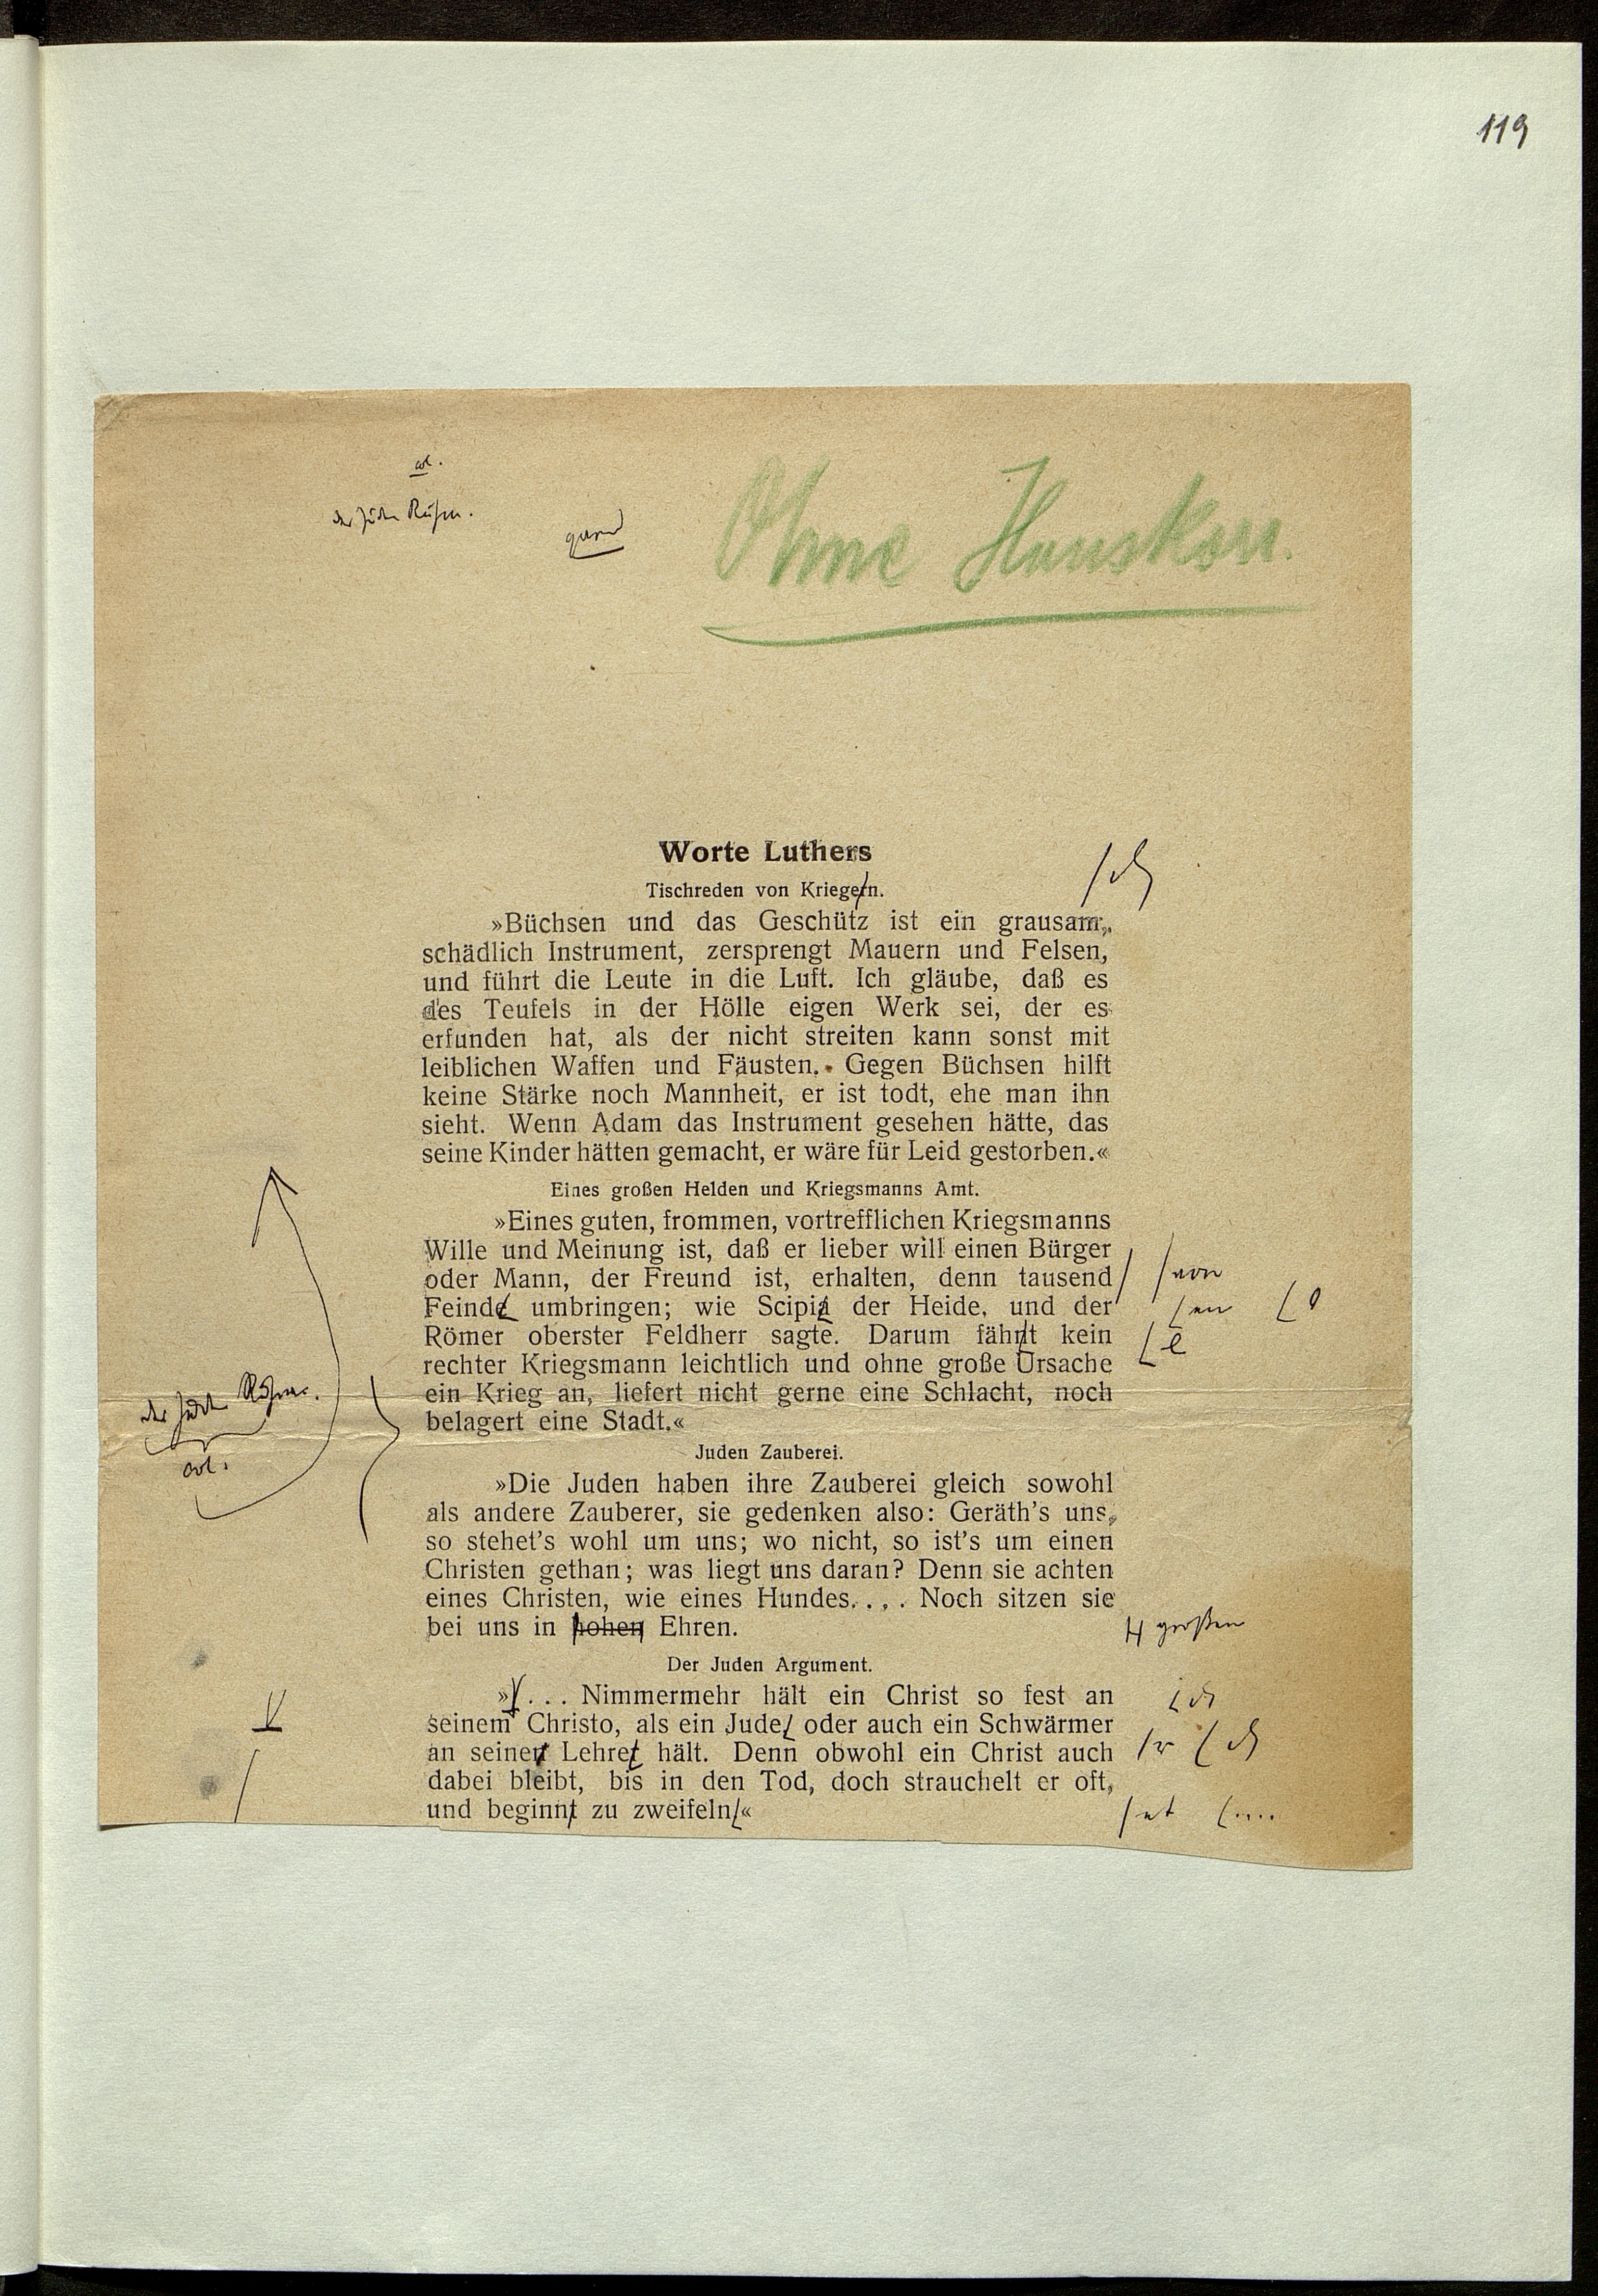 119
Ohne Hauskorr.
Worte Luthers
Tischreden von Kriegern.
»Büchsen und das Geschütz ist ein grausam,
schädlich Instrument, zersprengt Mauern und Felsen,
und führt die Leute in die Luft. Ich gläube, daß es
des Teufels in der Hölle eigen Werk sei, der es
erfunden hat, als der nicht streiten kann sonst mit
leiblichen Waffen und Fäusten. Gegen Büchsen hilft
keine Stärke noch Mannheit, er ist todt, ehe man ihn
sieht. Wenn Adam das Instrument gesehen hätte, das
seine Kinder hätten gemacht, er wäre für Leid gestorben.«
Eines großen Helden und Kriegsmanns Amt.
»Eines guten, frommen, vortrefflichen Kriegsmanns
Wille und Meinung ist, daß er lieber will einen Bürger
oder Mann, der Freund ist, erhalten, denn tausend
von
Feinde umbringen; wie Scipio der Heide, und der
en o
Römer oberster Feldherr sagte. Darum fähnt kein
e
rechter Kriegsmann leichtlich und ohne große Ursache
ein Krieg an, liefert nicht gerne eine Schlacht, noch
belagert eine Stadt.«
Juden Zauberei.
»Die Juden haben ihre Zauberei gleich sowohl
als andere Zauberer, sie gedenken also: Geräth's uns,
so stehet's wohl um uns; wo nicht, so ist's um einen
Christen gethan; was liegt uns daran? Denn sie achten
eines Christen, wie eines Hundes.... Noch sitzen sie
bei uns in hohen Ehren.
großen
Der Juden Argument.
»... Nimmermehr hält ein Christ so fest an
seinem Christo, als ein Jude oder auch ein Schwärmer
an seiner Lehre hält. Denn obwohl ein Christ auch
r
dabei bleibt, bis in den Tod, doch strauchelt er oft,
und beginnt zu zweifeln«
et ....